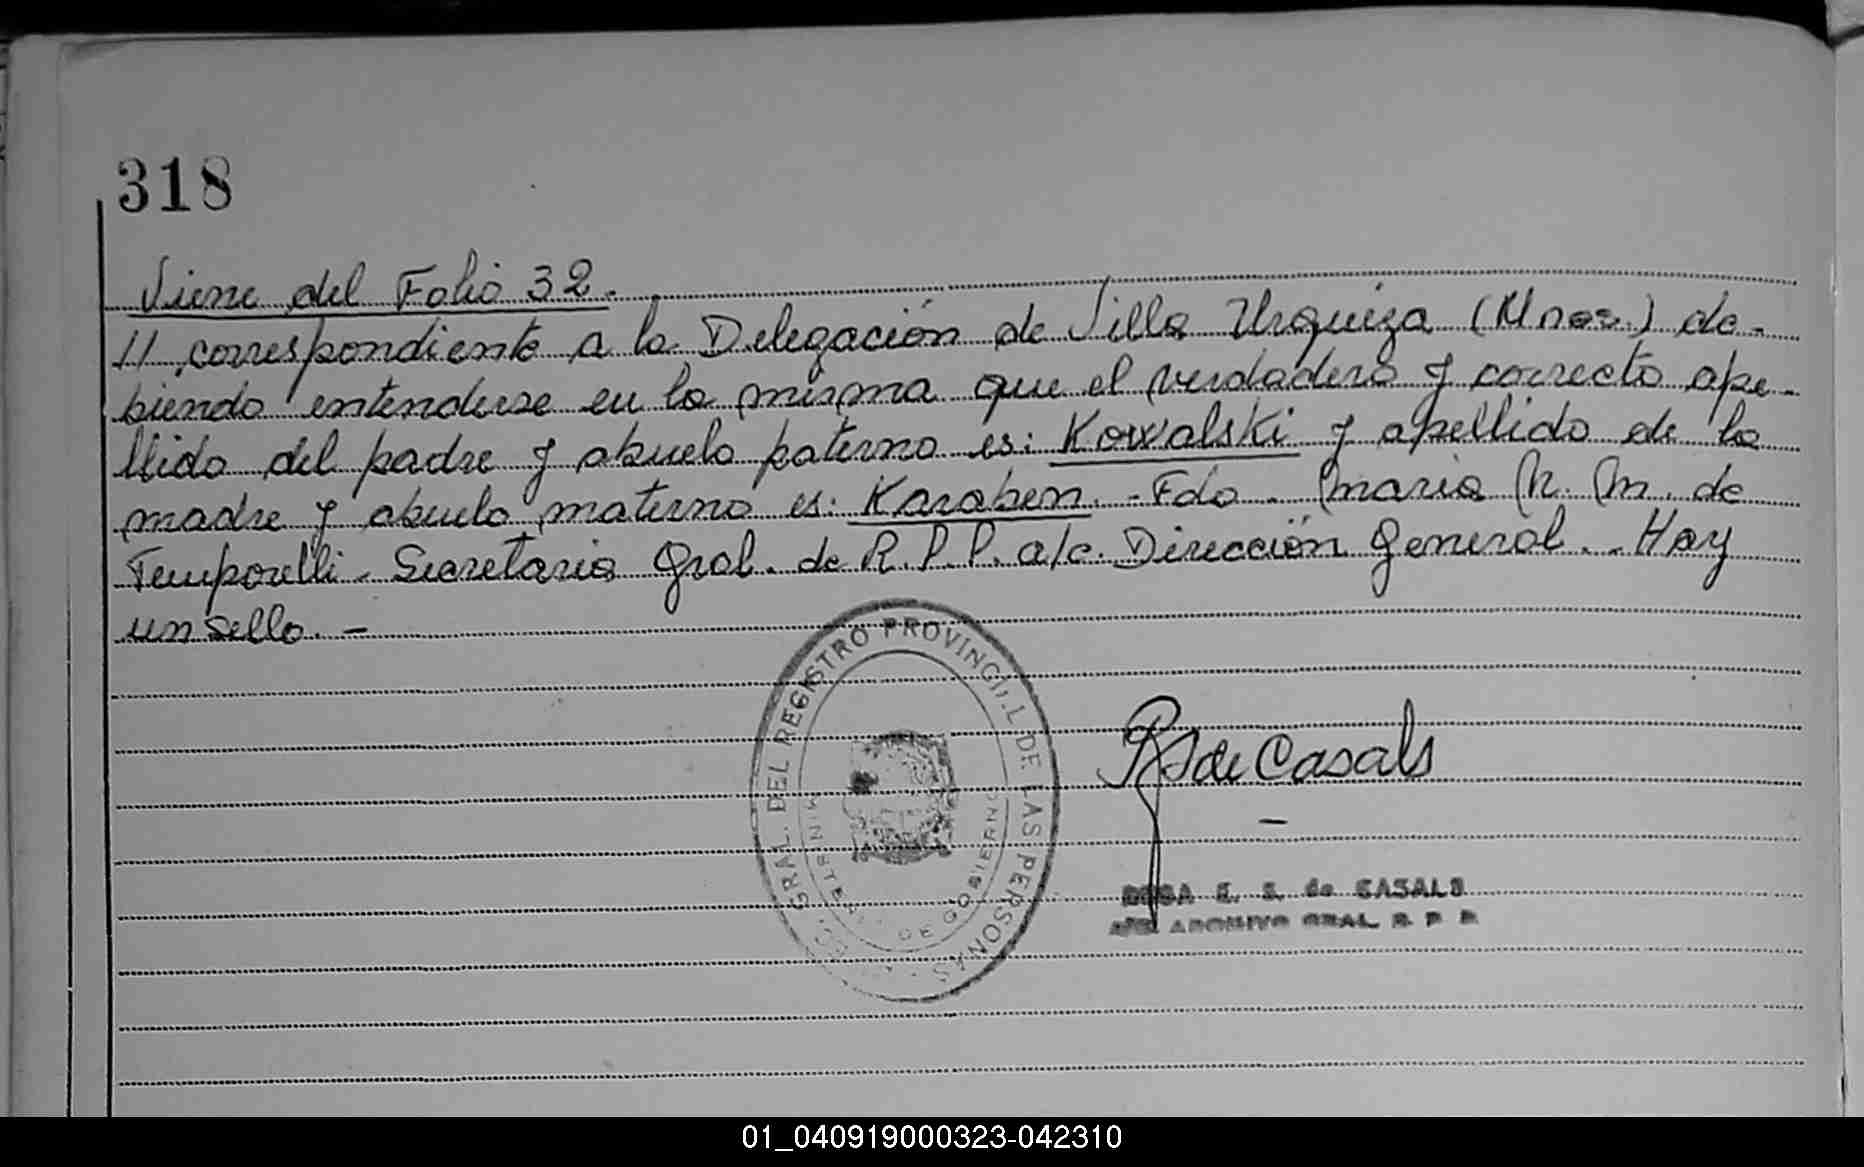 318
Viene del Folio 32.
// correspondiente a la Delegación de Villa Urquiza (Mnes.) de-
biendo entenderse en la misma que el verdadero y correcto ape-
llido del padre y abuelo paterno es: Kowalski y apellido de la
madre y abuelo materno es: Karaben. - Fdo. Maria N. M. de
Temporelli - Secretaria Gral. de R.P.P. a/c. Dirección General. - Hay
un sello. -
GRAL. DEL REGISTRO PROVINCIAL DE LAS PERSONAS
MINISTERIO DE GOBIERNO
R S de Casals
ROSA E. S. de CASALS
ARCHIVO GRAL. R. P. P.
01_040919000323-042310